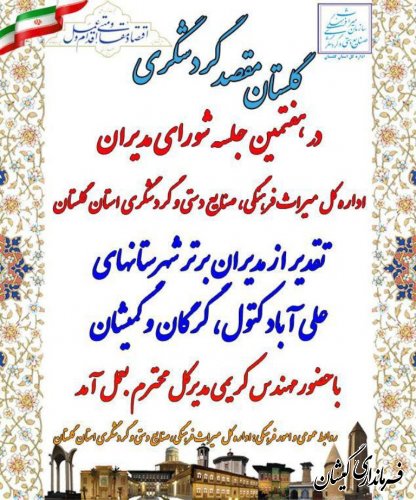 اقتصاد مقاومتی اقدام و عمل
اداره کل استان گلستان
گلستان مقصد گردشگری
در هفتمین جلسه شورای مدیران
اداره کل میراث فرهنگی، صنایع دستی و گردشگری استان گلستان
تقدیر از مدیران برتر شهرستانهای
علی آباد کتول، گرگان و گمیشان
با حضور مهندس کریمی مدیرکل محترم بعمل آمد
روابط عمومی و امور فرهنگی، اداره کل میراث فرهنگی، صنایع دستی و گردشگری استان گلستان
فرمانداری گمیشان